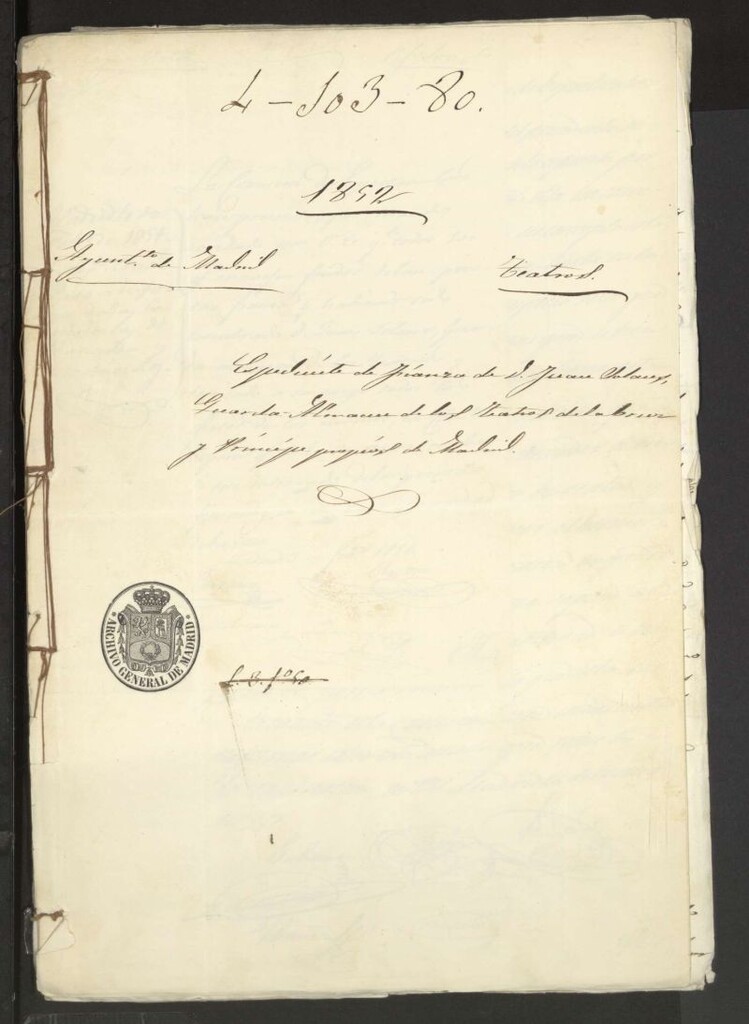 4-103-80.
1852
Ayunt.to de Madrid
Teatros.
Espediente de fianza de D. Juan
Guarda-Almacen de los Teatros de la Cruz
y Príncipe propios de Madrid.
ARCHIVO GENERAL DE MADRID